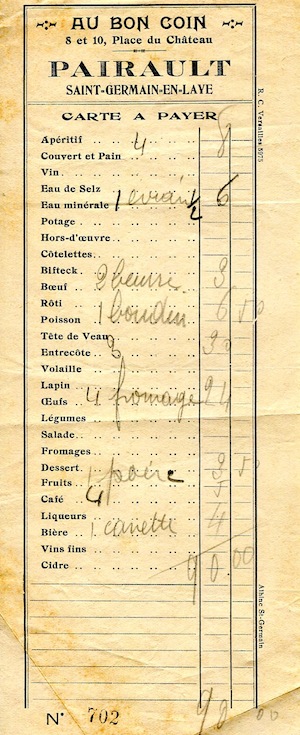 AU BON COIN
8 et 10, Place du Château
PAIRAULT
SAINT-GERMAIN-EN-LAYE
CARTE A PAYER
Apéritif
Couvert et Pain 4 8
Vin
Eau de Selz
Eau minérale 1 evian 1/2 6
Potage
Hors-d'œuvre
Côtelettes
Bifteck
Bœuf 2 beurre 3
Rôti
Poisson 1 boudin 6 50
Tête de Veau
Entrecôte 3 30
Volaille
Lapin
Œufs 4 fromage 24
Légumes
Salade
Fromages
Dessert 1 poire 3 50
Fruits
Café 4
Liqueurs
Bière 1 canette 4
Vins fins
Cidre 90 00
N° 702 90 00
R. C. Versailles 8975
Albine St-Germain